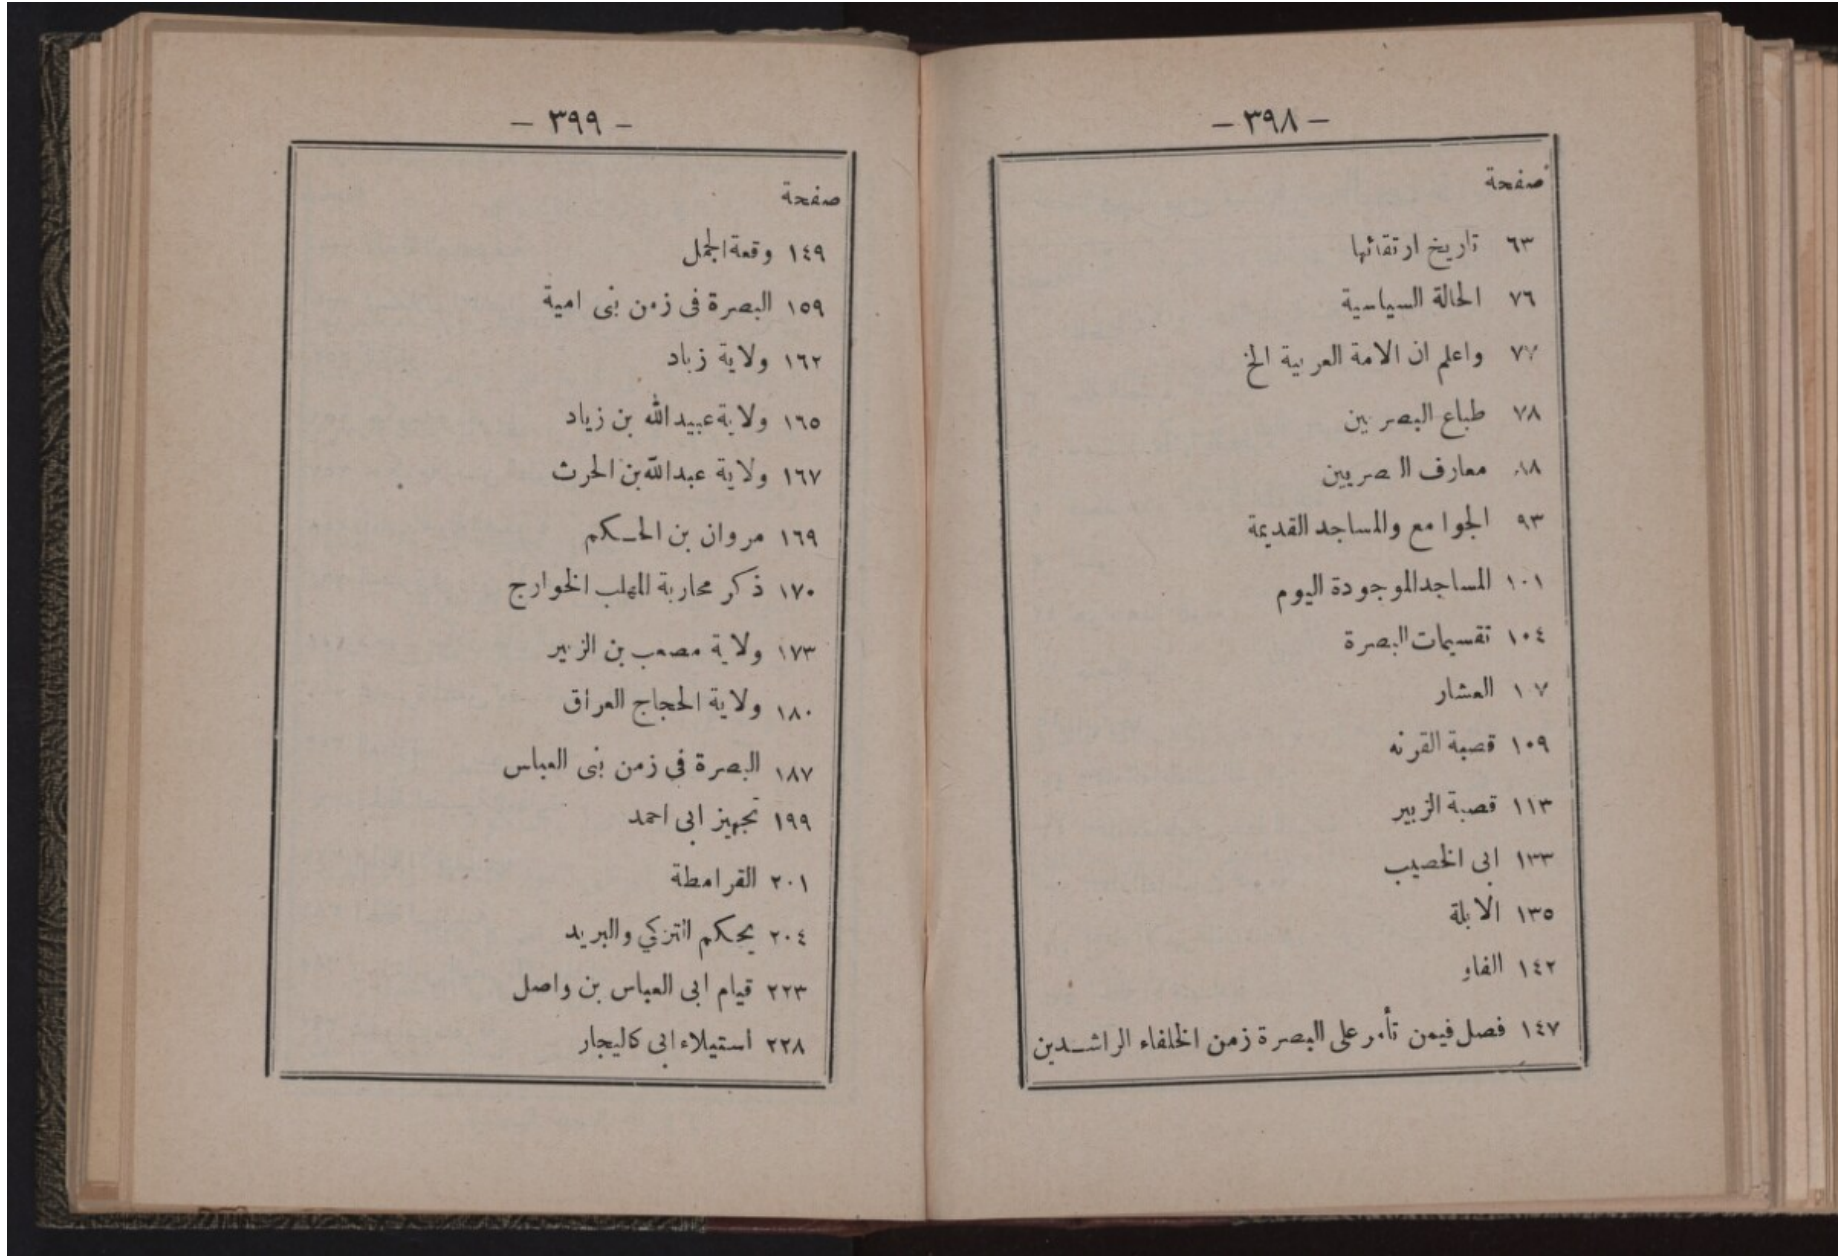 — ٣٩٨ —
صفحة
٦٣ تاريخ ارتقائها
٧٦ الحالة السياسية
٧٧ واعلم ان الامة العربية الخ
٧٨ طباع البصريين
٨٨ معارف البصريين
٩٣ الجوامع والمساجد القديمة
١٠١ المساجد الموجودة اليوم
١٠٤ تقسيمات البصرة
١٠٧ العشار
١٠٩ قصبة القرنه
١١٣ قصبة الزبير
١٣٣ ابى الخصيب
١٣٥ الابلة
١٤٢ الفاو
١٤٧ فصل فيمن تأمر على البصرة زمن الخلفاء الراشدين
— ٣٩٩ —
صفحة
١٤٩ وقعة الجمل
١٥٩ البصرة فى زمن بنى امية
١٦٢ ولاية زياد
١٦٥ ولاية عبيدالله بن زياد
١٦٧ ولاية عبدالله بن الحرث
١٦٩ مروان بن الحكم
١٧٠ ذكر محاربة المهلب الخوارج
١٧٣ ولاية مصعب بن الزبير
١٨٠ ولاية الحجاج العراق
١٨٧ البصرة في زمن بنى العباس
١٩٩ تجهيز ابى احمد
٢٠١ القرامطة
٢٠٤ يحكم التركي والبريد
٢٢٣ قيام ابى العباس بن واصل
٢٢٨ استيلاء ابى كاليجار